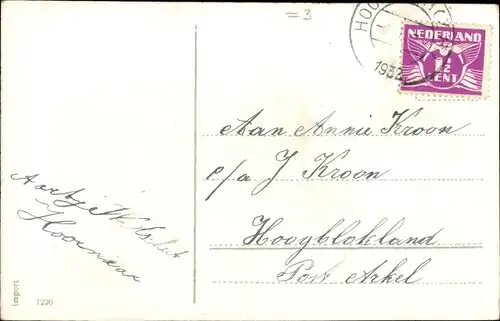 =3
HOO
1932
NEDERLAND
1½
CENT
Aan Annie Kroon
p/a J Kroon
Hoogblokland
Post Arkel
Aartje W.
Hoornaar
Import
1220